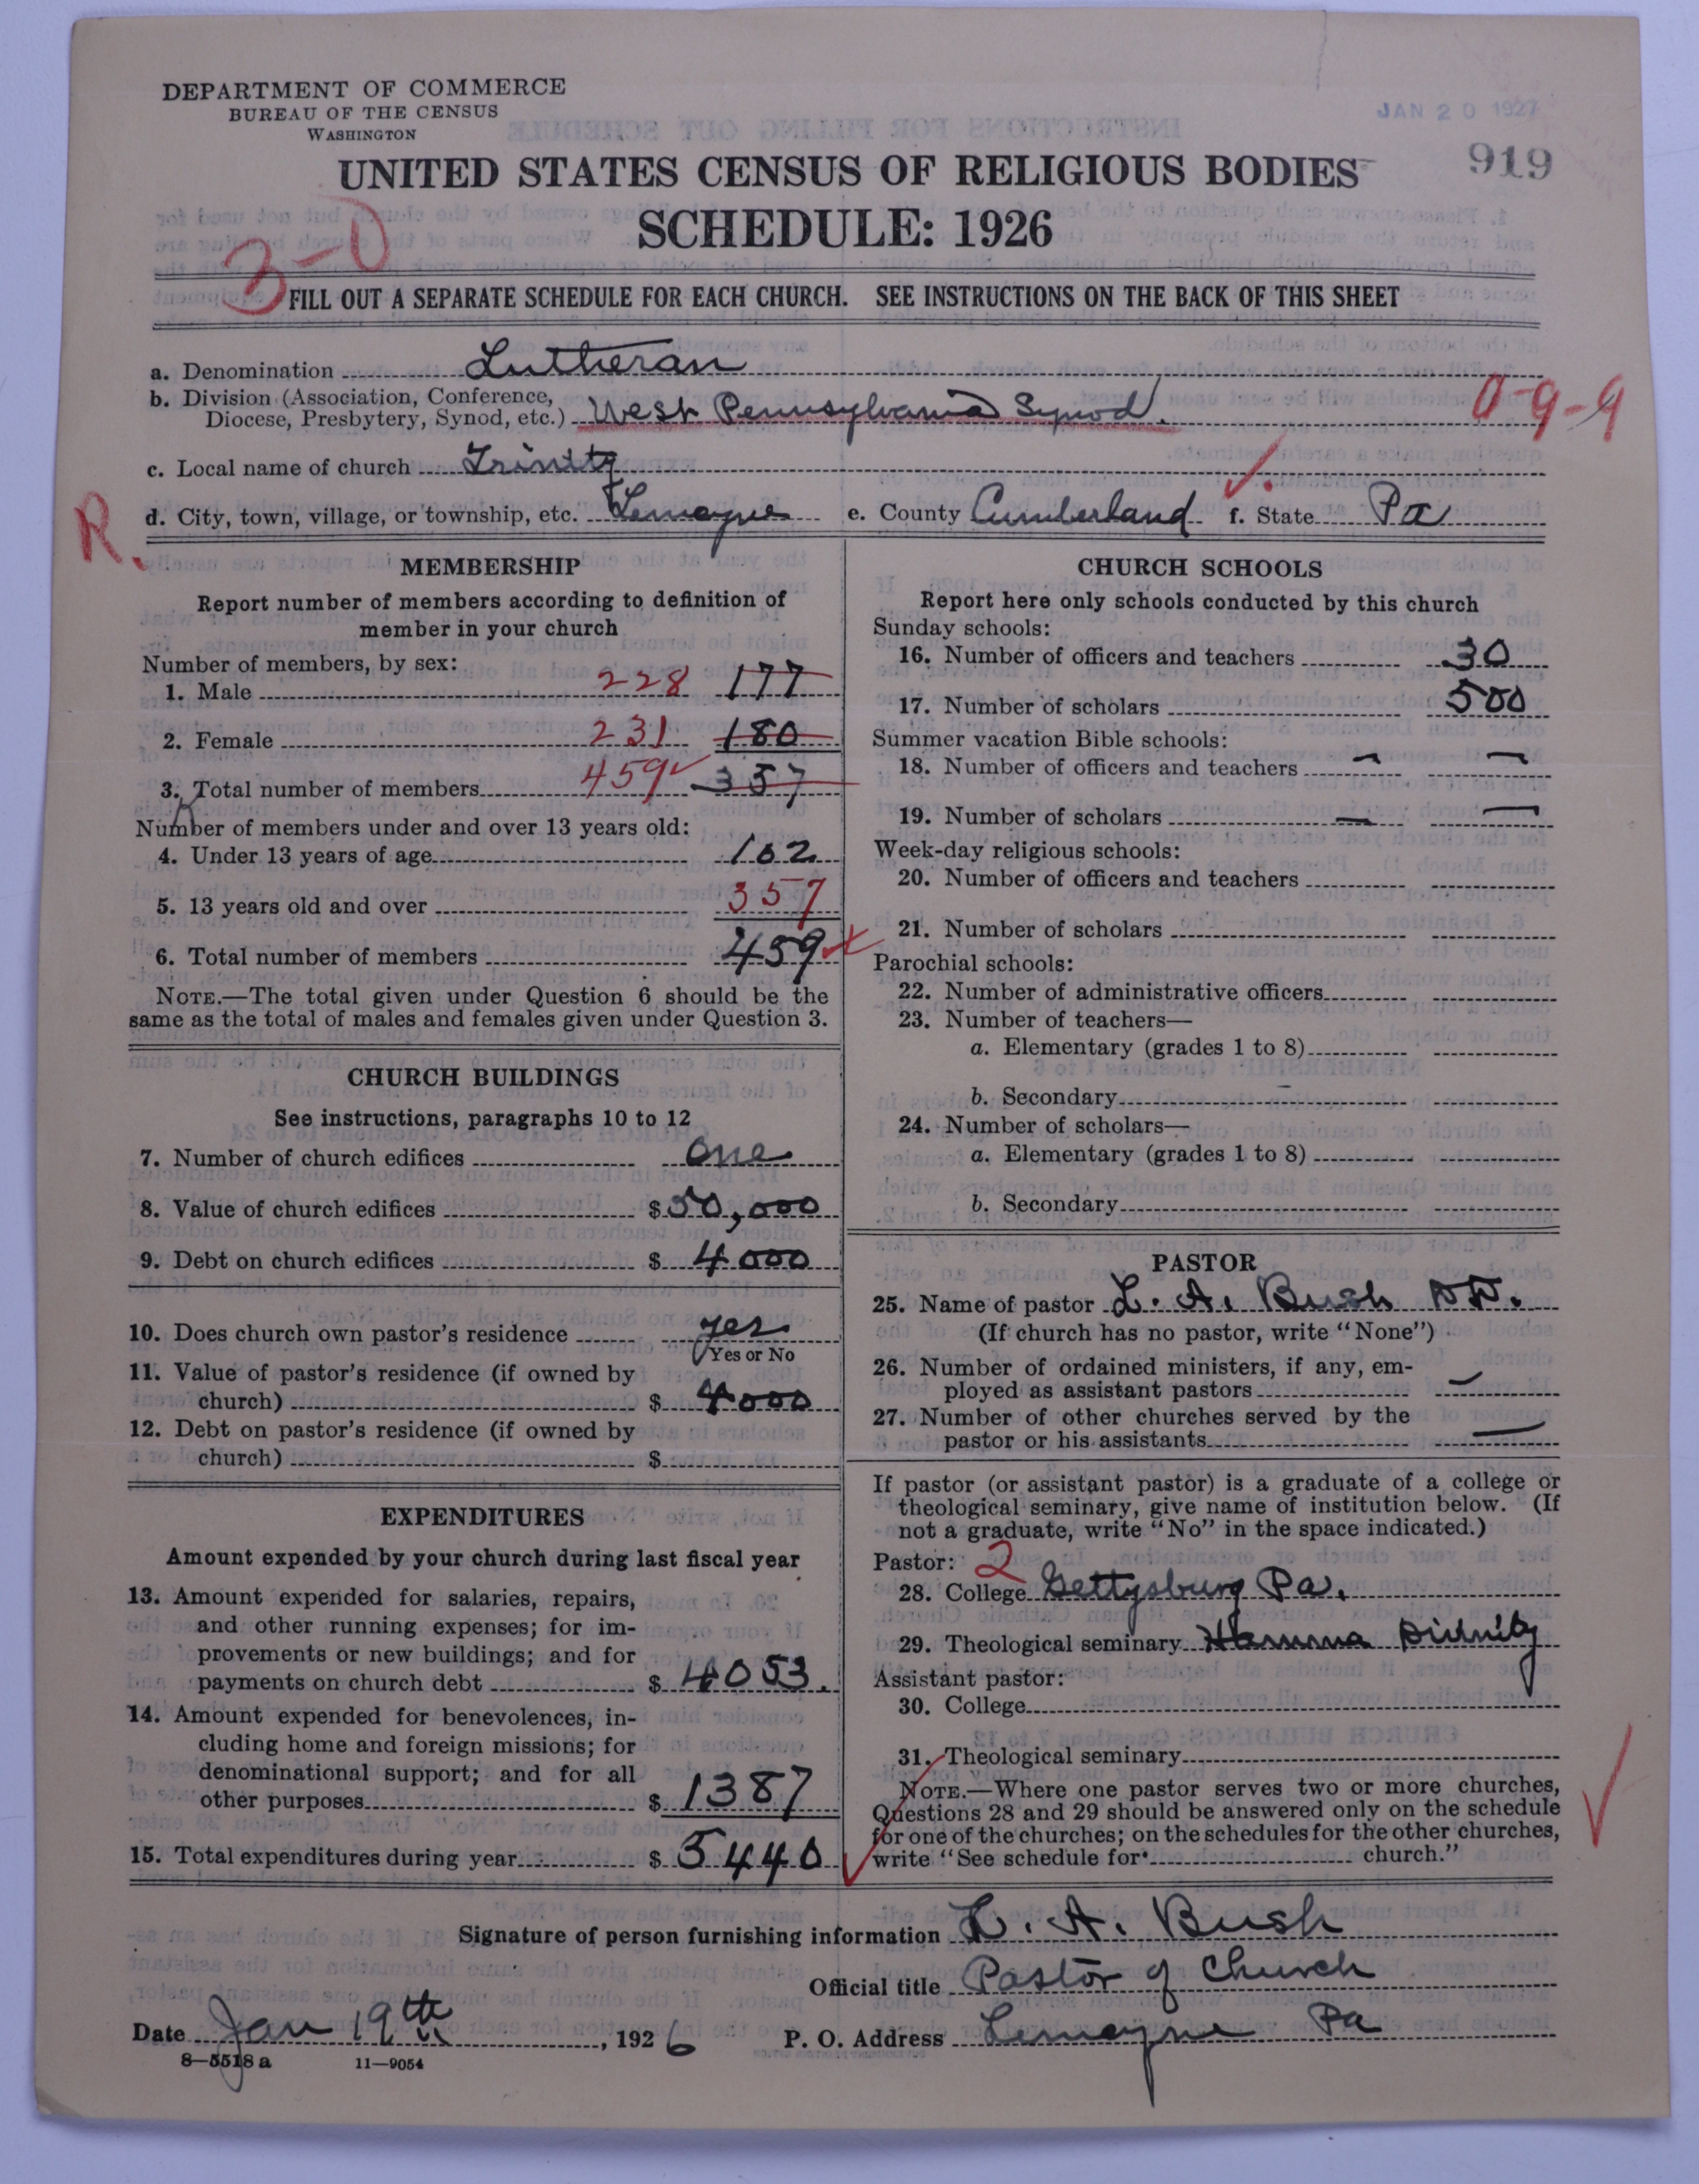 DEPARTMENT OF COMMERCE
BUREAU OF THE CENSUS
WASHINGTON
JAN 20 1927
919
UNITED STATES CENSUS OF RELIGIOUS BODIES
SCHEDULE: 1926
3-0
FILL OUT A SEPARATE SCHEDULE FOR EACH CHURCH. SEE INSTRUCTIONS ON THE BACK OF THIS SHEET
a. Denomination Lutheran
b. Division (Association, Conference,
Diocese, Presbytery, Synod, etc.) West Pennsylvania Synod.
0-9-9
c. Local name of church Trinity
R.
d. City, town, village, or township, etc. Lemoyne e. County Cumberland f. State Pa
MEMBERSHIP
Report number of members according to definition of
member in your church
Number of members, by sex:
1. Male 228 177
2. Female 231 180
3. Total number of members 459 357
Number of members under and over 13 years old:
4. Under 13 years of age 102
5. 13 years old and over 357
6. Total number of members 459
NOTE.—The total given under Question 6 should be the
same as the total of males and females given under Question 3.
CHURCH BUILDINGS
See instructions, paragraphs 10 to 12
7. Number of church edifices one
8. Value of church edifices $50,000
9. Debt on church edifices $ 4000
10. Does church own pastor's residence yes
Yes or No
11. Value of pastor's residence (if owned by
church) $ 4000
12. Debt on pastor's residence (if owned by
church) $
EXPENDITURES
Amount expended by your church during last fiscal year
13. Amount expended for salaries, repairs,
and other running expenses; for im-
provements or new buildings; and for
payments on church debt $ 4053.
14. Amount expended for benevolences, in-
cluding home and foreign missions; for
denominational support; and for all
other purposes $ 1387
15. Total expenditures during year $ 5440
CHURCH SCHOOLS
Report here only schools conducted by this church
Sunday schools:
16. Number of officers and teachers 30
17. Number of scholars 500
Summer vacation Bible schools:
18. Number of officers and teachers — —
19. Number of scholars — —
Week-day religious schools:
20. Number of officers and teachers
21. Number of scholars
Parochial schools:
22. Number of administrative officers
23. Number of teachers—
a. Elementary (grades 1 to 8)
b. Secondary
24. Number of scholars—
a. Elementary (grades 1 to 8)
b. Secondary
PASTOR
25. Name of pastor L. A. Bush DD.
(If church has no pastor, write "None")
26. Number of ordained ministers, if any, em-
ployed as assistant pastors —
27. Number of other churches served by the
pastor or his assistants —
If pastor (or assistant pastor) is a graduate of a college or
theological seminary, give name of institution below. (If
not a graduate, write "No" in the space indicated.)
Pastor: 2
28. College Gettysburg Pa.
29. Theological seminary Hamma Divinity
Assistant pastor:
30. College
31. Theological seminary
NOTE.—Where one pastor serves two or more churches,
Questions 28 and 29 should be answered only on the schedule
for one of the churches; on the schedules for the other churches,
write "See schedule for church."
Signature of person furnishing information L. A. Bush
Official title Pastor of Church
Date Jan 19th, 1926 P. O. Address Lemoyne Pa
8—5518 a 11—9054